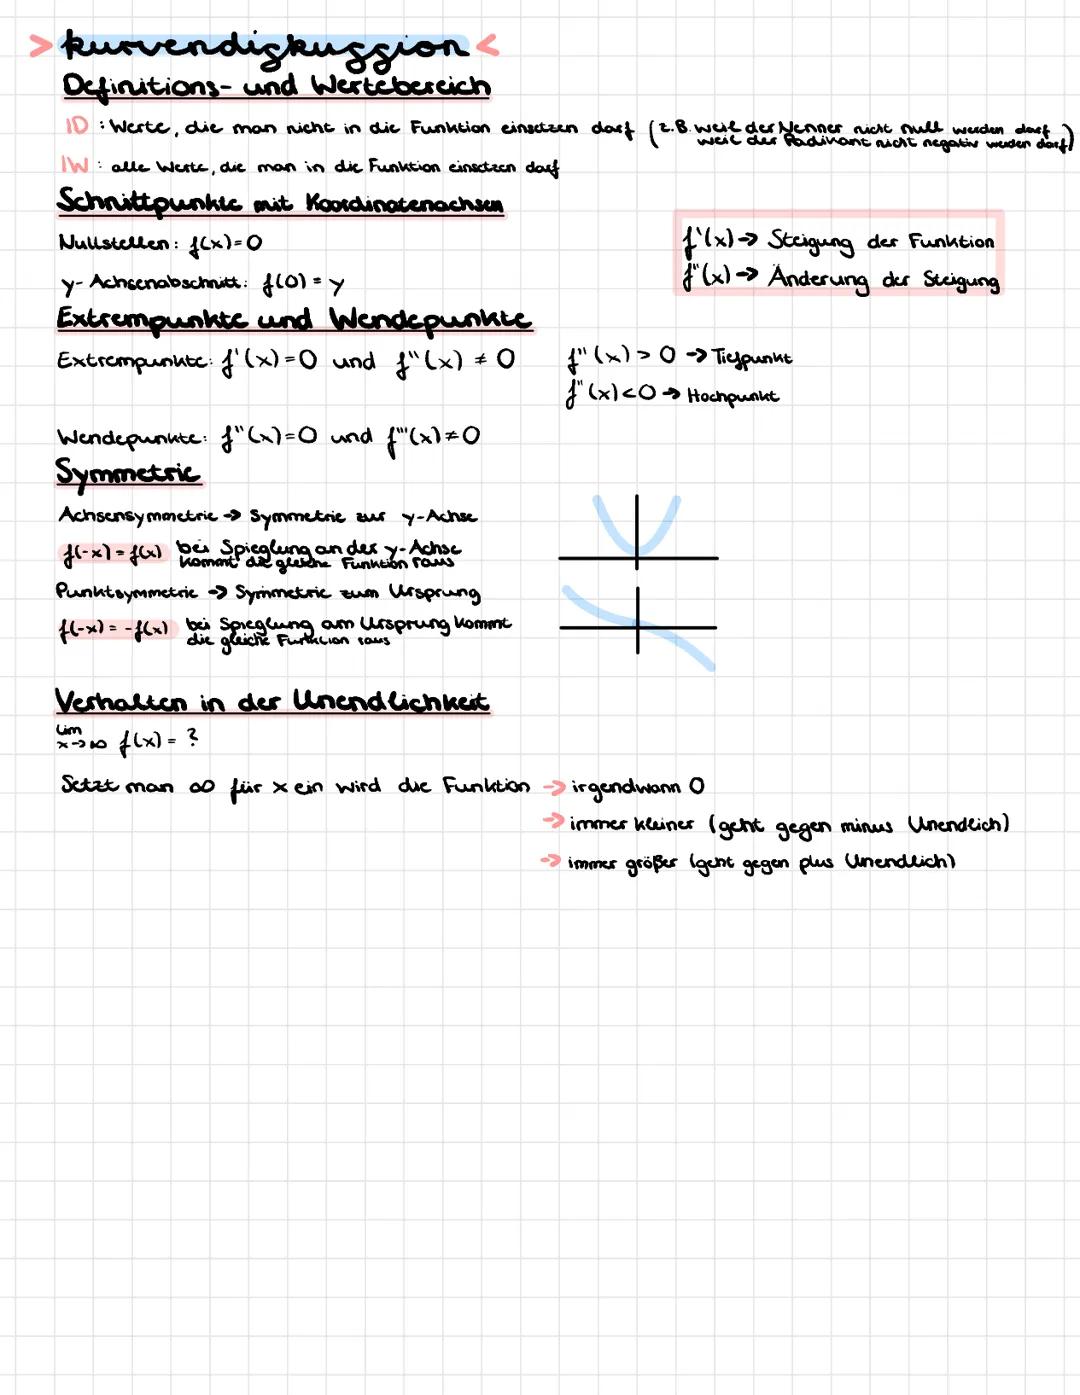 > Kurvendiskussion <
Definitions- und Wertebereich
ID : Werte, die man nicht in die Funktion einsetzen darf (z.B. weil der Nenner nicht null werden darf
weil der Radikant nicht negativ werden darf)
IW : alle Werte, die man in die Funktion einsetzen darf
Schnittpunkte mit Koordinatenachsen
Nullstellen: f(x)=0
y-Achsenabschnitt: f(0) = y
f'(x) → Steigung der Funktion
f''(x) → Änderung der Steigung
Extrempunkte und Wendepunkte
Extrempunkte: f'(x)=0 und f''(x) ≠ 0
f''(x) > 0 → Tiefpunkt
f''(x) < 0 → Hochpunkt
Wendepunkte: f''(x)=0 und f'''(x)≠0
Symmetrie
Achsensymmetrie → Symmetrie zur y-Achse
f(-x) = f(x) bei Spieglung an der y-Achse
kommt die gleiche Funktion raus
Punktsymmetrie → Symmetrie zum Ursprung
f(-x) = -f(x) bei Spieglung am Ursprung kommt
die gleiche Funktion raus
Verhalten in der Unendlichkeit
lim
x→∞ f(x) = ?
Setzt man ∞ für x ein wird die Funktion → irgendwann 0
→ immer kleiner (geht gegen minus Unendlich)
→ immer größer (geht gegen plus Unendlich)